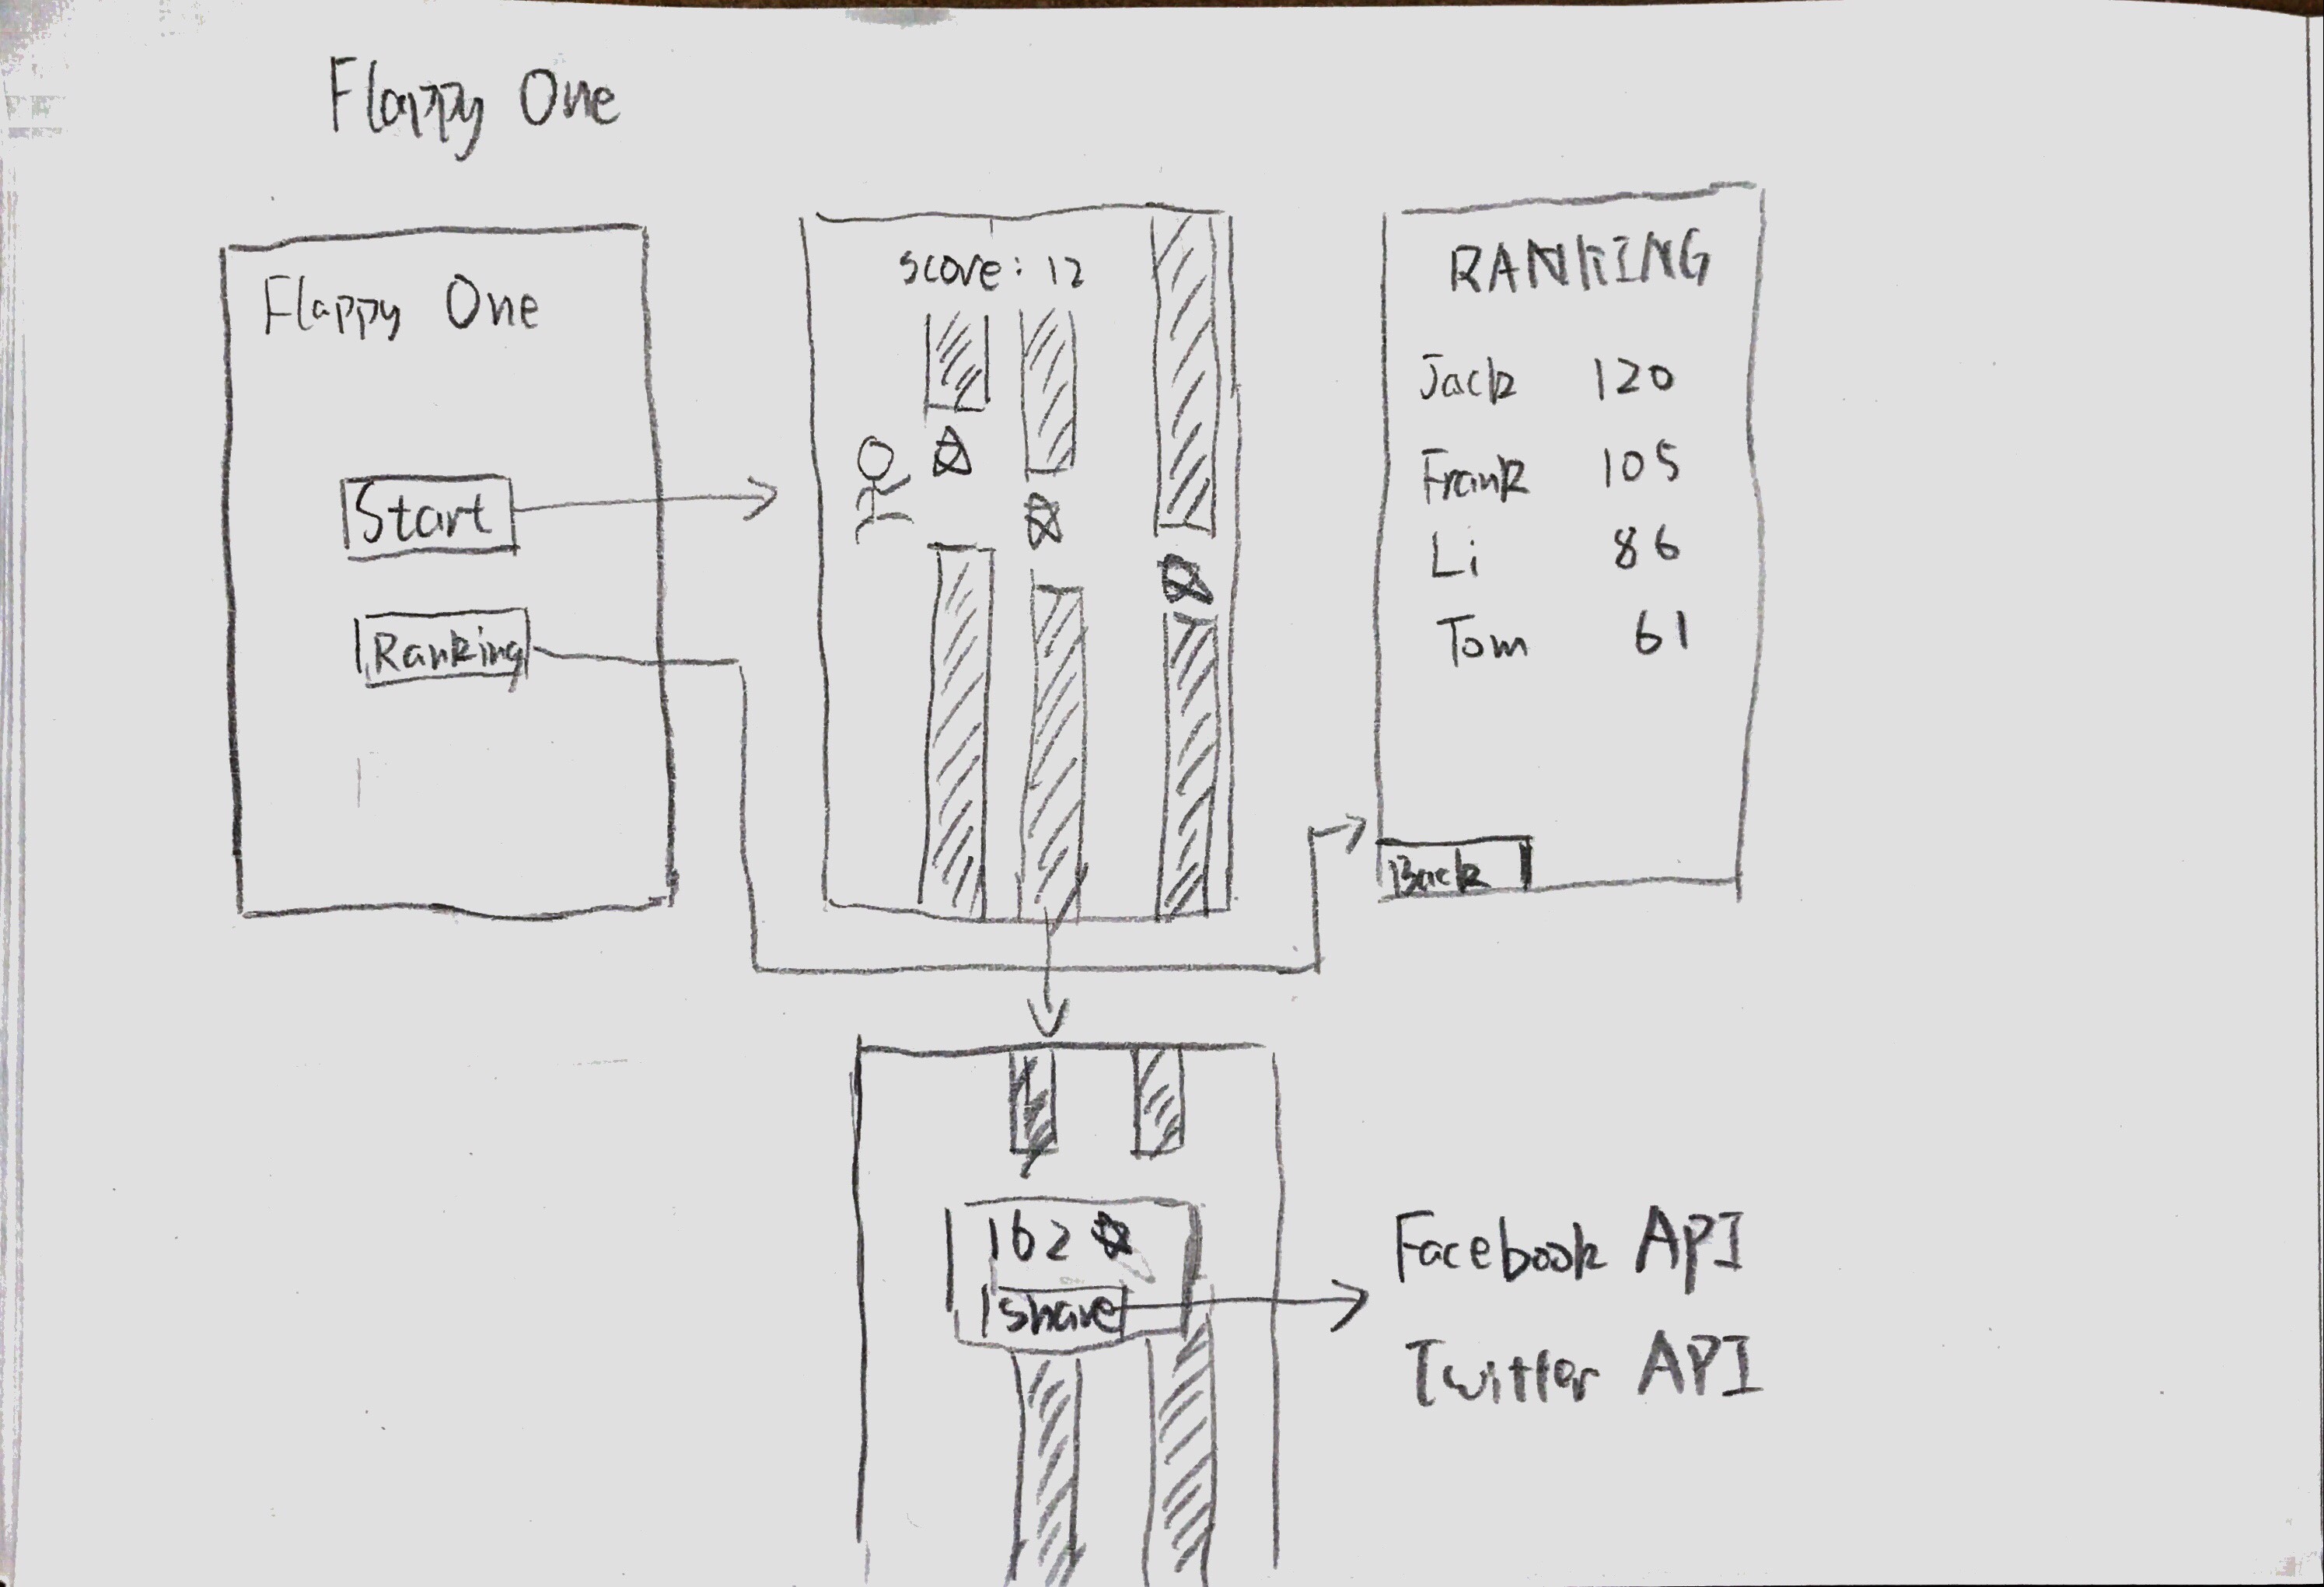 Flappy One
Flappy One
Start
Ranking
score: 12
RANKING
Jack 120
Frank 105
Li 86
Tom 61
Back
162
share
Facebook API
Twitter API